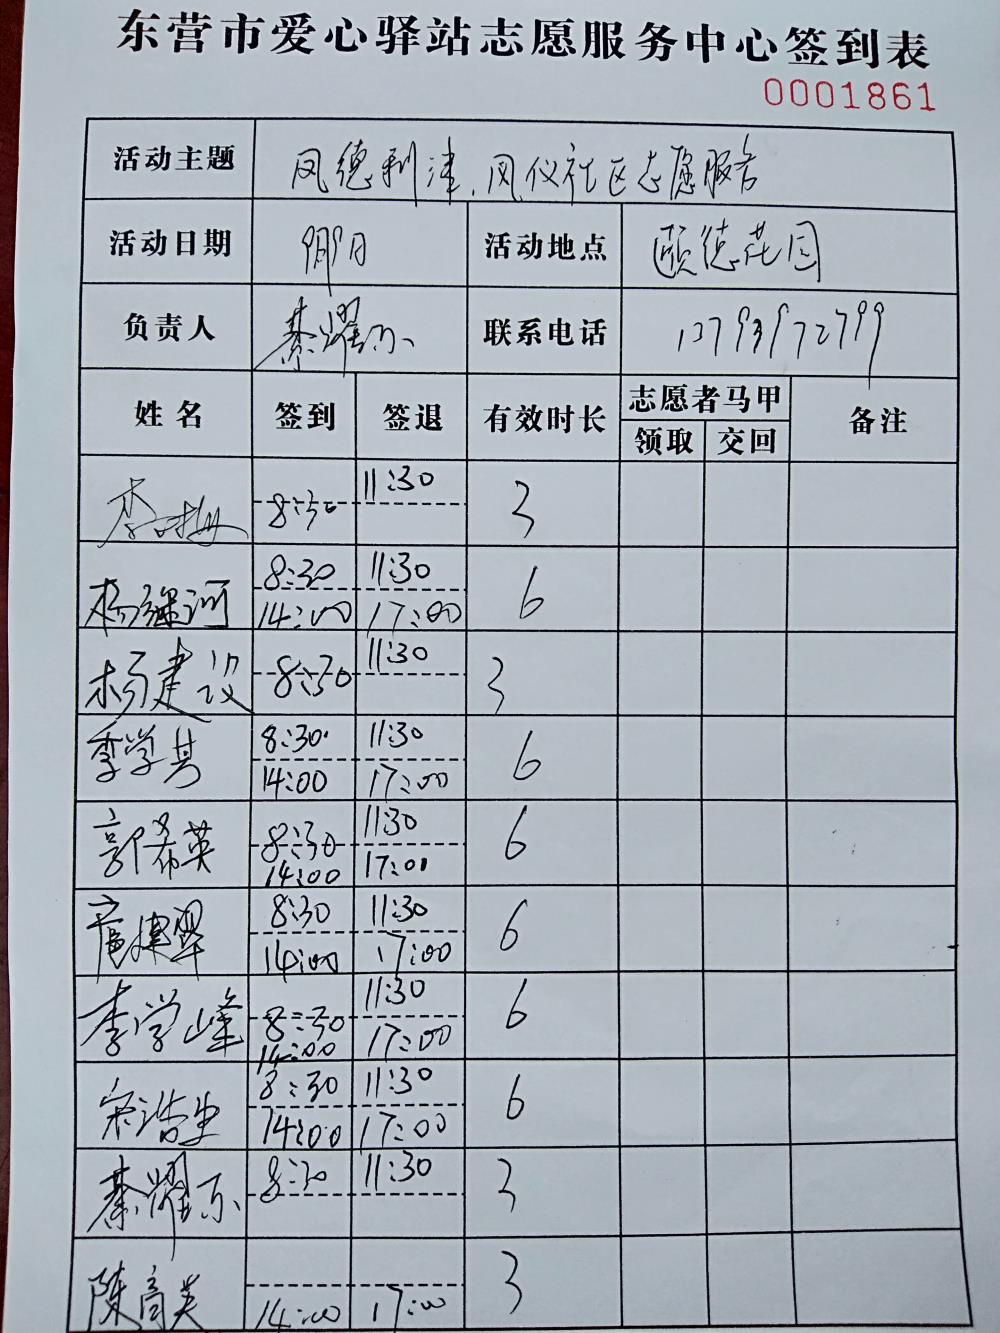 东营市爱心驿站志愿服务中心签到表
0001861
活动主题 凤德利津、凤仪社区志愿服务
活动日期 活动地点 颐德花园
负责人 綦耀东 联系电话 13793972799
姓名 签到 签退 有效时长 志愿者马甲 备注
领取 交回
李 8:30 11:30 3
杨继河 8:30 11:30 6
14:00 17:00
杨建设 8:30 11:30 3
季学其 8:30 11:30 6
14:00 17:00
郭希英 8:30 11:30 6
14:00 17:00
8:30 11:30 6
14:00 17:00
李学峰 8:30 11:30 6
14:00 17:00
宋浩 8:30 11:30 6
14:00 17:00
綦耀东 8:30 11:30 3
陈育英 14:00 17:00 3